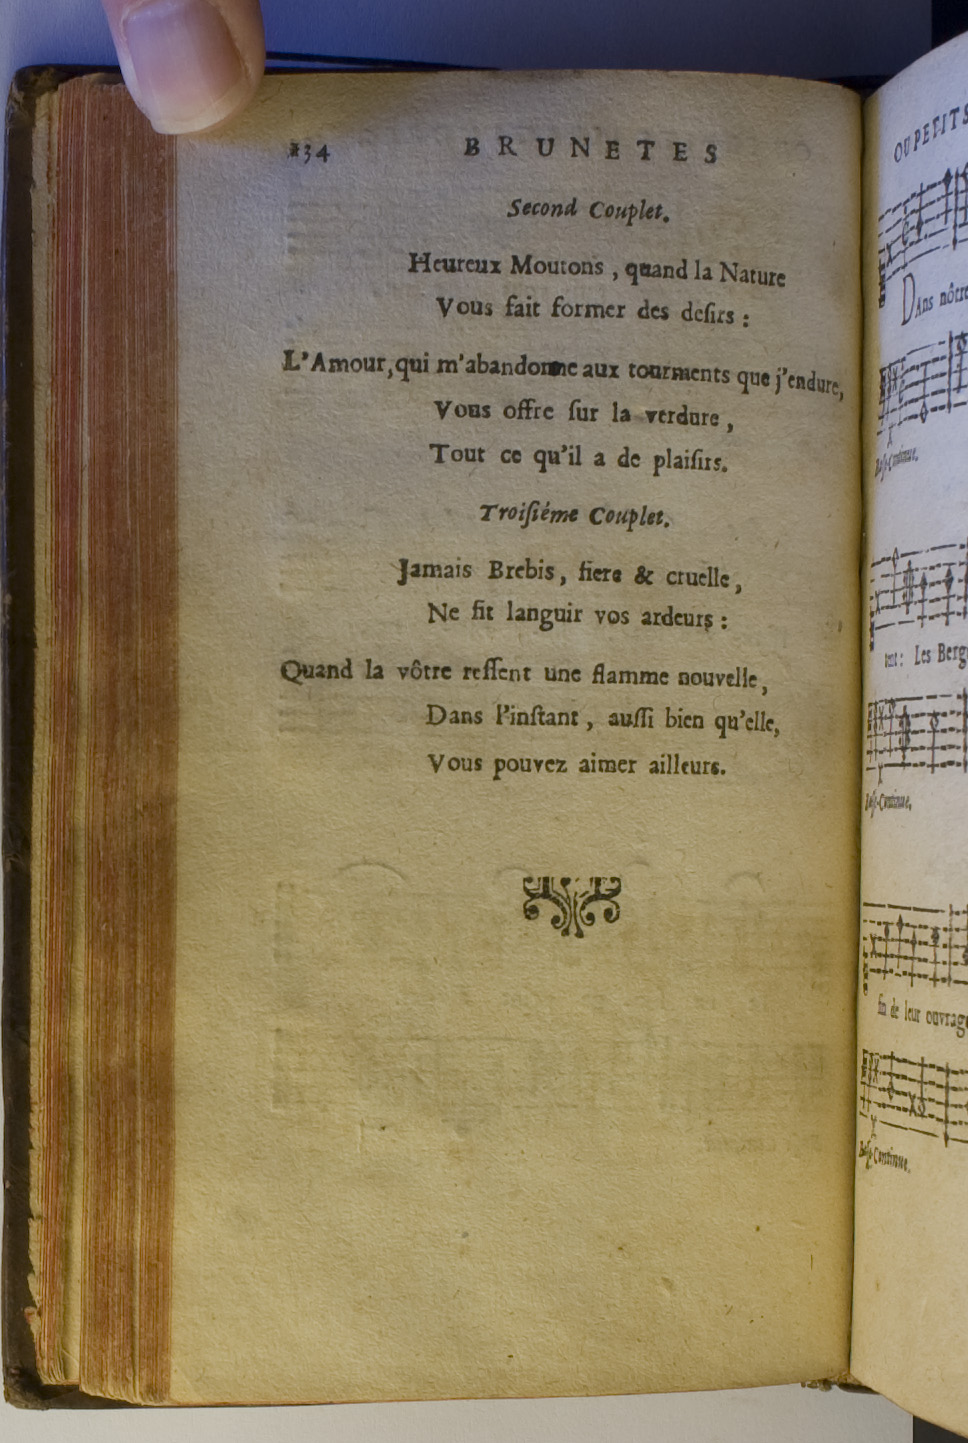 134 BRUNETES
Second Couplet.
Heureux Moutons, quand la Nature
Vous fait former des desirs :
L'Amour, qui m'abandonne aux tourments que j'endure,
Vous offre sur la verdure,
Tout ce qu'il a de plaisirs.
Troisiéme Couplet.
Jamais Brebis, fiere & cruelle,
Ne fit languir vos ardeurs :
Quand la vôtre ressent une flamme nouvelle,
Dans l'instant, aussi bien qu'elle,
Vous pouvez aimer ailleurs.
OU PETITS
DAns nôtre
Basse-Continue.
tent : Les Berg
Basse-Continue.
fin de leur ouvrag
Basse-Continue.